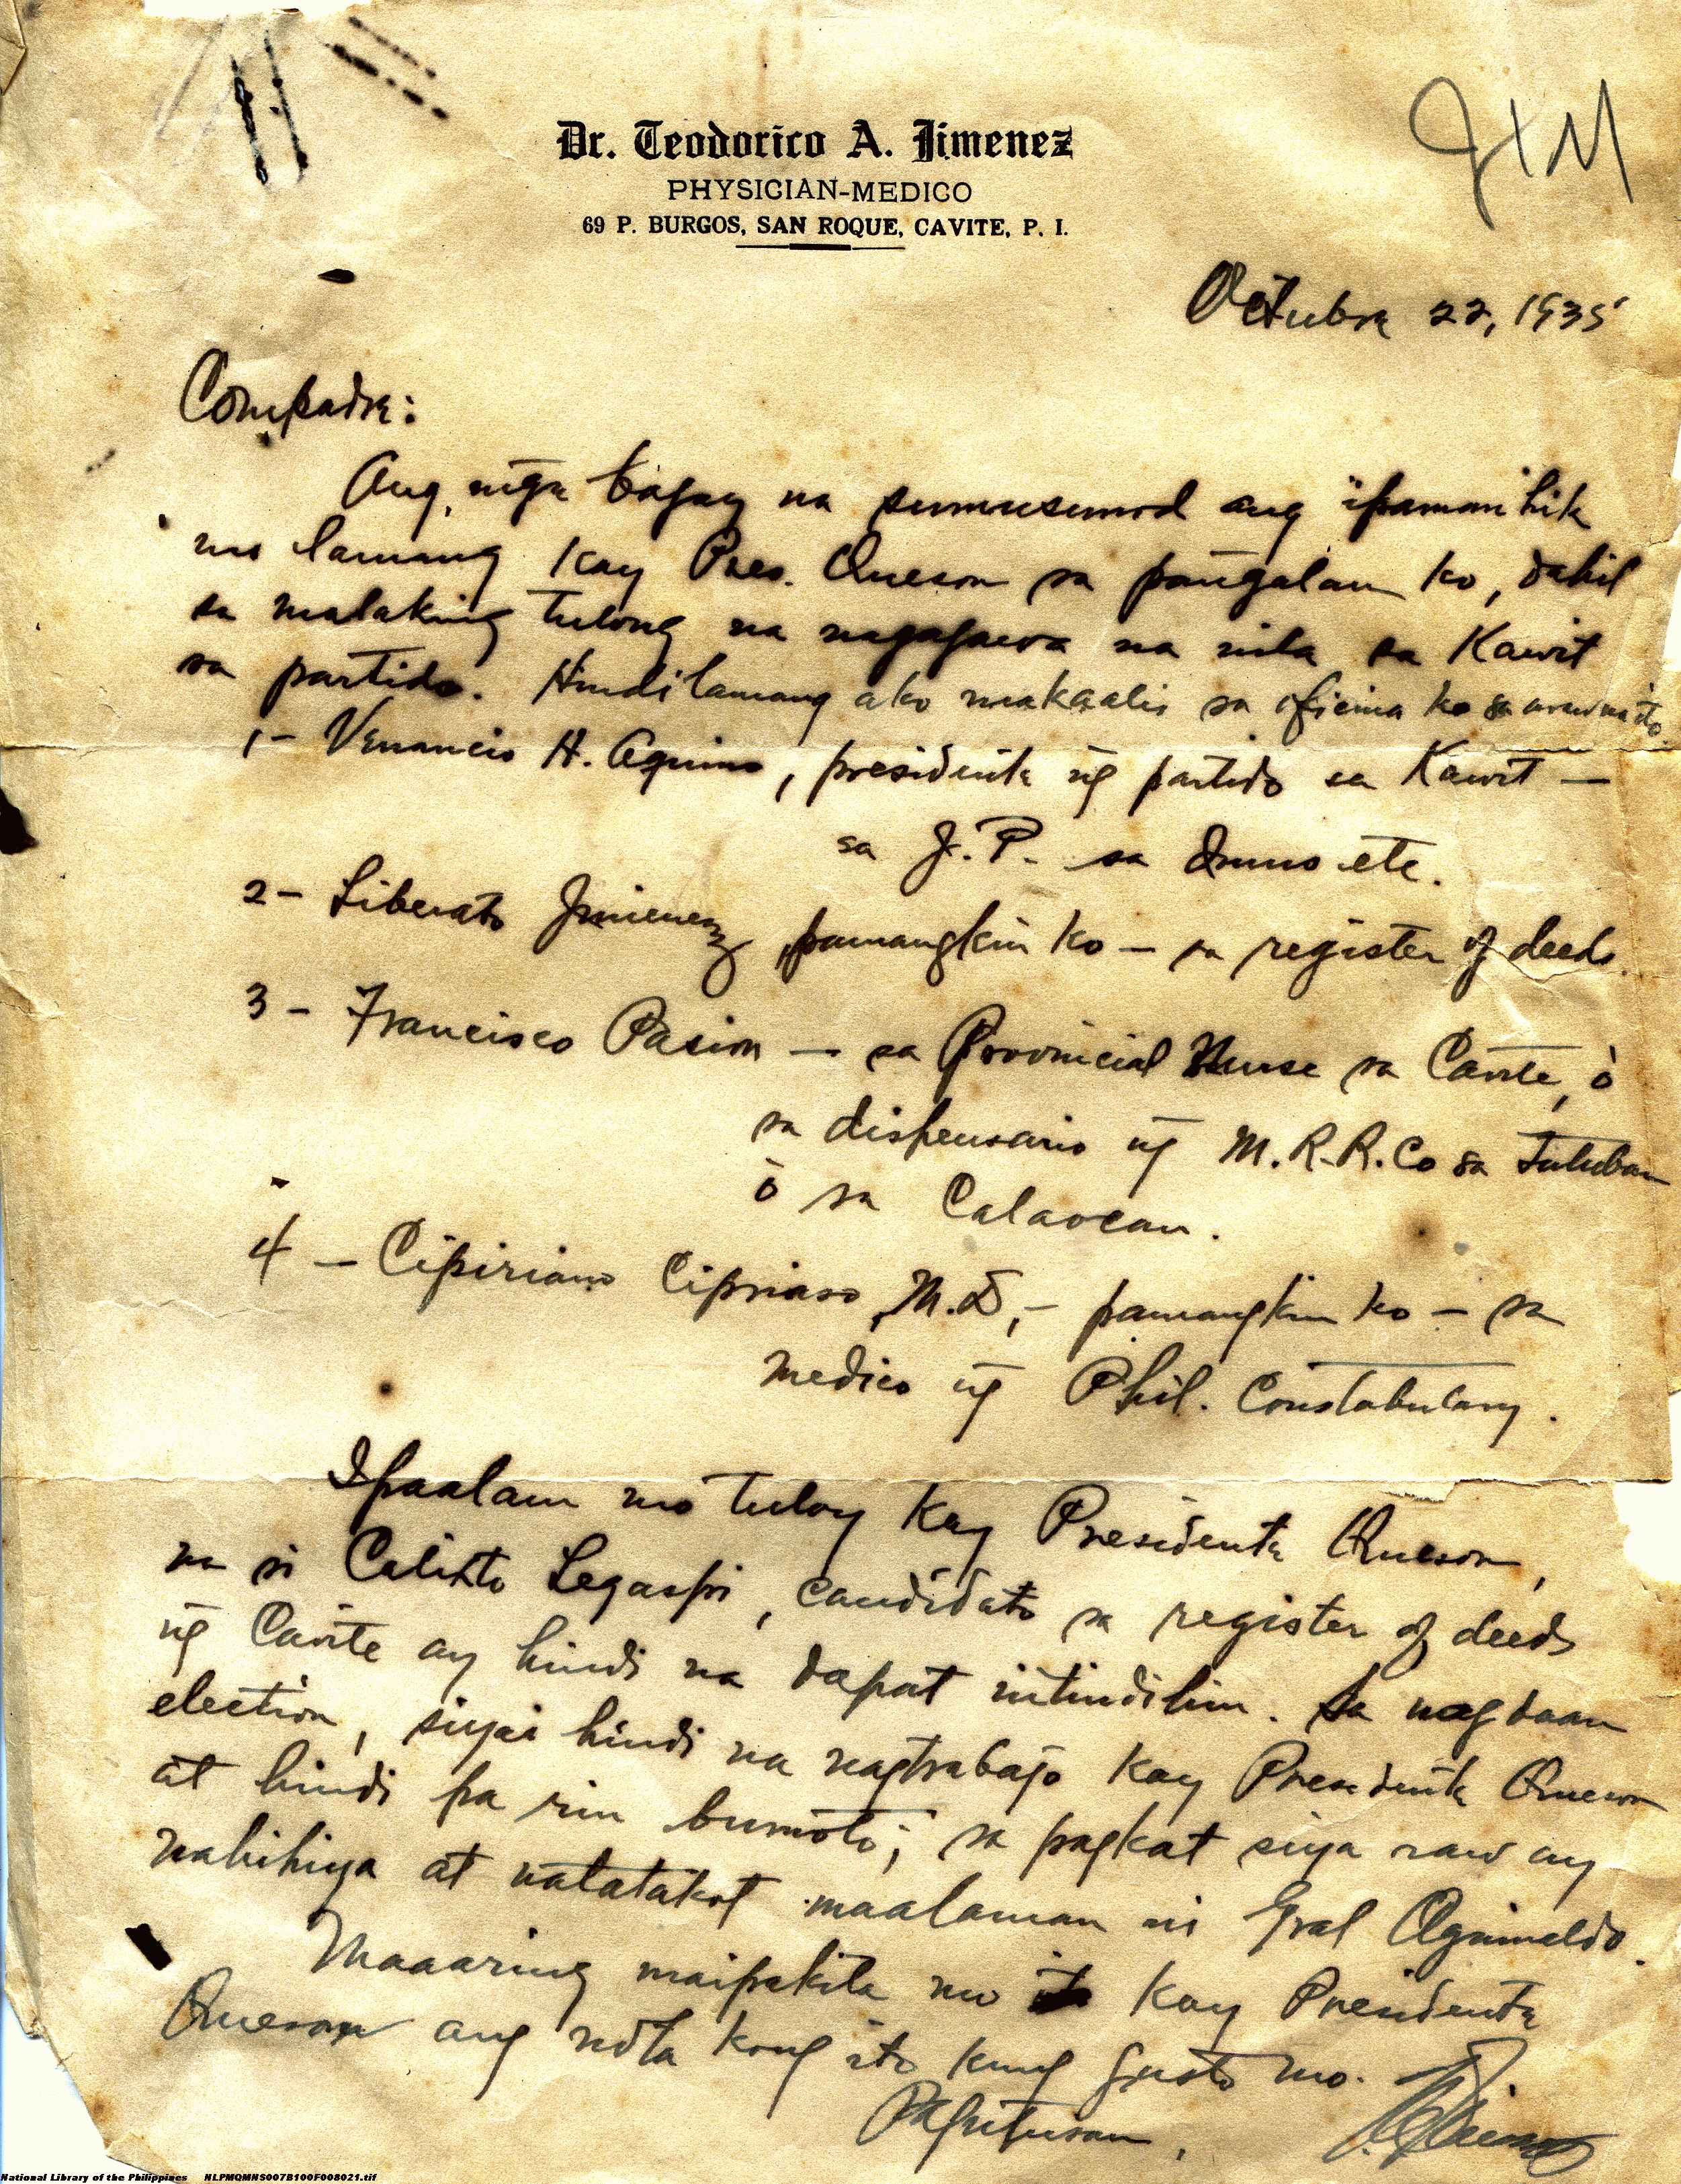 JIM
Dr. Teodorico A. Jimenez
PHYSICIAN-MEDICO
69 P. BURGOS, SAN ROQUE, CAVITE, P. I.
Octubre 22, 1935
Compadre:
Ang mga bagay na sumusunod ang ipamanihik
mo lamang kay Pres. Queson sa pangalan ko, dahil
sa malaking tulong na nagagawa na nila sa Kawit
sa partido. Hindi lamang ako makaalis sa oficina ko sa araw na ito.
1- Venancio H. Aquino, presidente ng partido sa Kawit —
sa J. P. sa Imus etc.
2- Liberato Jimenez, pamangkin ko — sa register of deeds.
3 - Francisco Pasion — sa Provincial Nurse sa Cavite, ó
sa dispensario ng M.R.R.Co sa Tutuban
ó sa Calaocan.
4 - Cipiriano Cipriaso, M.D, - pamangkin ko - sa
medico ng Phil. Constabulary.
Ipaalam mo tuloy kay Presidente Queson,
na si Calixto Legaspi, candidato sa register of deeds
ng Cavite ay hindi na dapat intindihin. Sa nagdaan
election, siyai hindi na nagtrabajo kay Presidente Queson
at hindi pa rin bumoto; sa pagkat siya raw ay
nahihiya at natatakot maalaman ni Gral Aguinaldo.
Maaaring maipakita mo kay Presidente
Queson ang nota kong ito kung gusto mo.
Pagutusan,
National Library of the Philippines NLPMQMNS007B100F008021.tif